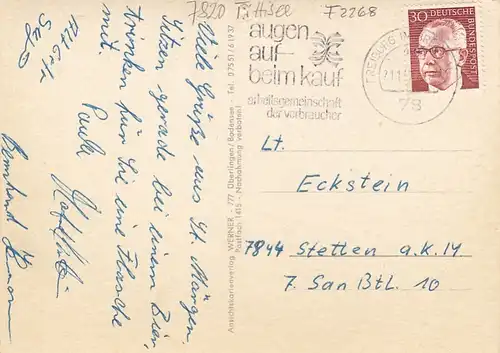 7820 Titisee
F2268
augen
auf-
beim kauf
arbeitsgemeinschaft
der verbraucher
FREIBURG
78
30 DEUTSCHE
BUNDESPOST
Viele Grüße aus St. Märgen
Sitzen gerade bei einem Bier,
trinken für Sie eine Flasche
mit.
Bernhard
Ansichtskartenverlag WERNER - 777 Überlingen/Bodensee - Tel. 07551/61937
Postfach 1415 - Nachahmung verboten!
Lt.
Eckstein
7844 Stetten a.K.M
7. San Btl. 10